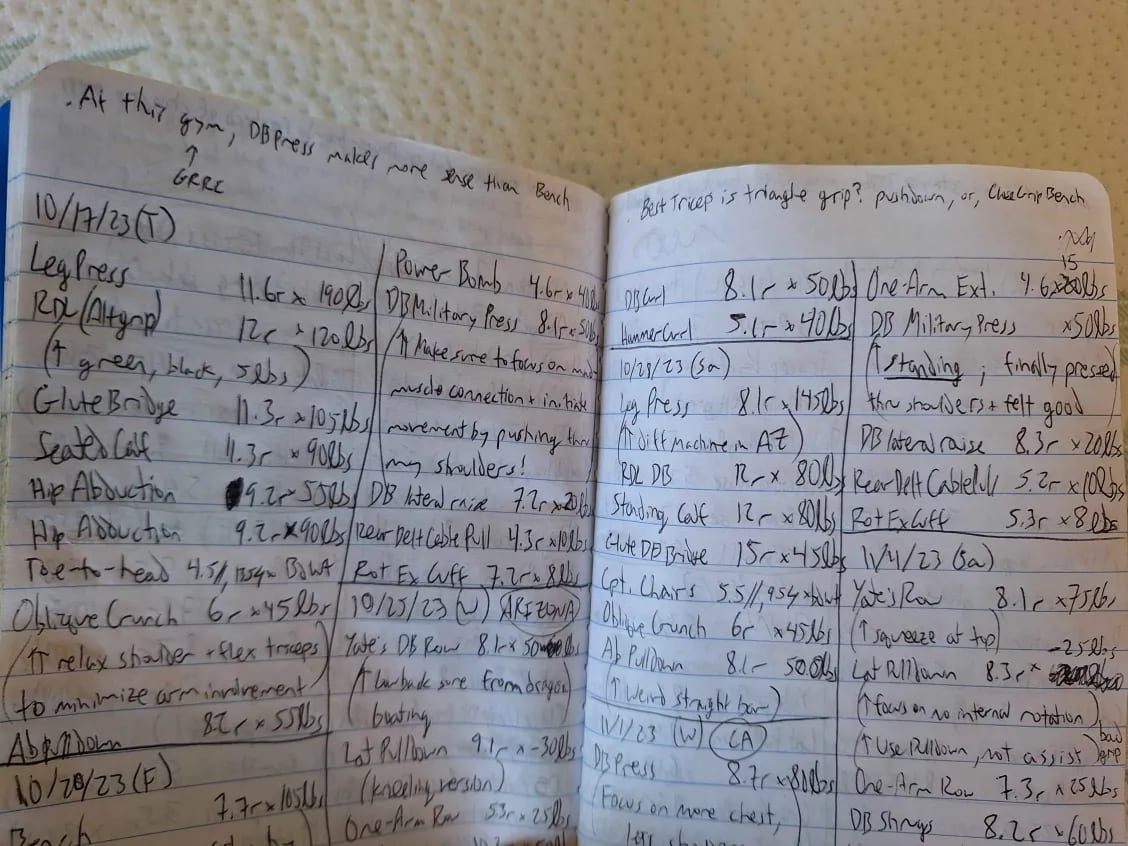 . At this gym, DB Press makes more sense than Bench
↑
GRRC
10/17/23 (T)
Leg Press 11.6r x 190lbs
RDL (Alt grip) 12r x 120lbs
(↑ green, black, 5lbs)
Glute Bridge 11.3r x 105lbs
Seated Calf 11.3r x 90lbs
Hip Abduction 9.2r 55lbs
Hip Adduction 9.2r x 90lbs
Toe-to-head 4.5//
Oblique Crunch 6r x 45lbs
(↑ relax shoulder + flex triceps
to minimize arm involvement)
Ab Pulldown 8.2r x 55lbs
10/20/23 (F)
Bench 7.7r x 105lbs
Power Bomb 4.6r x 40lbs
DB Military Press 8.1r x 50lbs
(↑ Make sure to focus on mind
muscle connection + initiate
movement by pushing thru
my shoulders!
DB lateral raise 7.2r x 20lbs
Rear Delt Cable Pull 4.3r x 10lbs
Rot Ex Cuff 7.2r x 8lbs
10/25/23 (W) ARIZONA
Yate's DB Row 8.1r x 50lbs
(↑ Low back sore from dragon
boating
Lat Pulldown 9.1r x -30lbs
(kneeling version)
One-Arm Row 5.3r x 25lbs
. Best Tricep is triangle grip? pushdown, or, Close Grip Bench
DB Curl 8.1r x 50lbs
Hammer Curl 5.1r x 40lbs
10/28/23 (Sa)
Leg Press 8.1r x 145lbs
(↑ Diff machine in AZ)
RDL DB 12r x 80lbs
Standing Calf 12r x 80lbs
Glute DB Bridge 15r x 45lbs
Cpt. Chairs 5.5//, 954 x bwt
Oblique Crunch 6r x 45lbs
Ab Pulldown 8.1r 50lbs
(↑ Weird straight bar)
11/1/23 (W) CA
DB Press 8.7r x 80lbs
(Focus on more chest,
less
15
One-Arm Ext. 4.6 x lbs
DB Military Press x 50lbs
(↑ Standing; finally pressed
thru shoulders + felt good
DB lateral raise 8.3r x 20lbs
Rear Delt Cable Pull 5.2r x 10lbs
Rot Ex Cuff 5.3r x 8lbs
11/4/23 (Sa)
Yate's Row 8.1r x 75lbs
(↑ squeeze at top)
-25lbs
Lat Pulldown 8.3r x
(↑ focus on no internal rotation)
(↑ Use Pulldown, not assist) bad grip
One-Arm Row 7.3r x 25lbs
DB Shrugs 8.2r x 60lbs